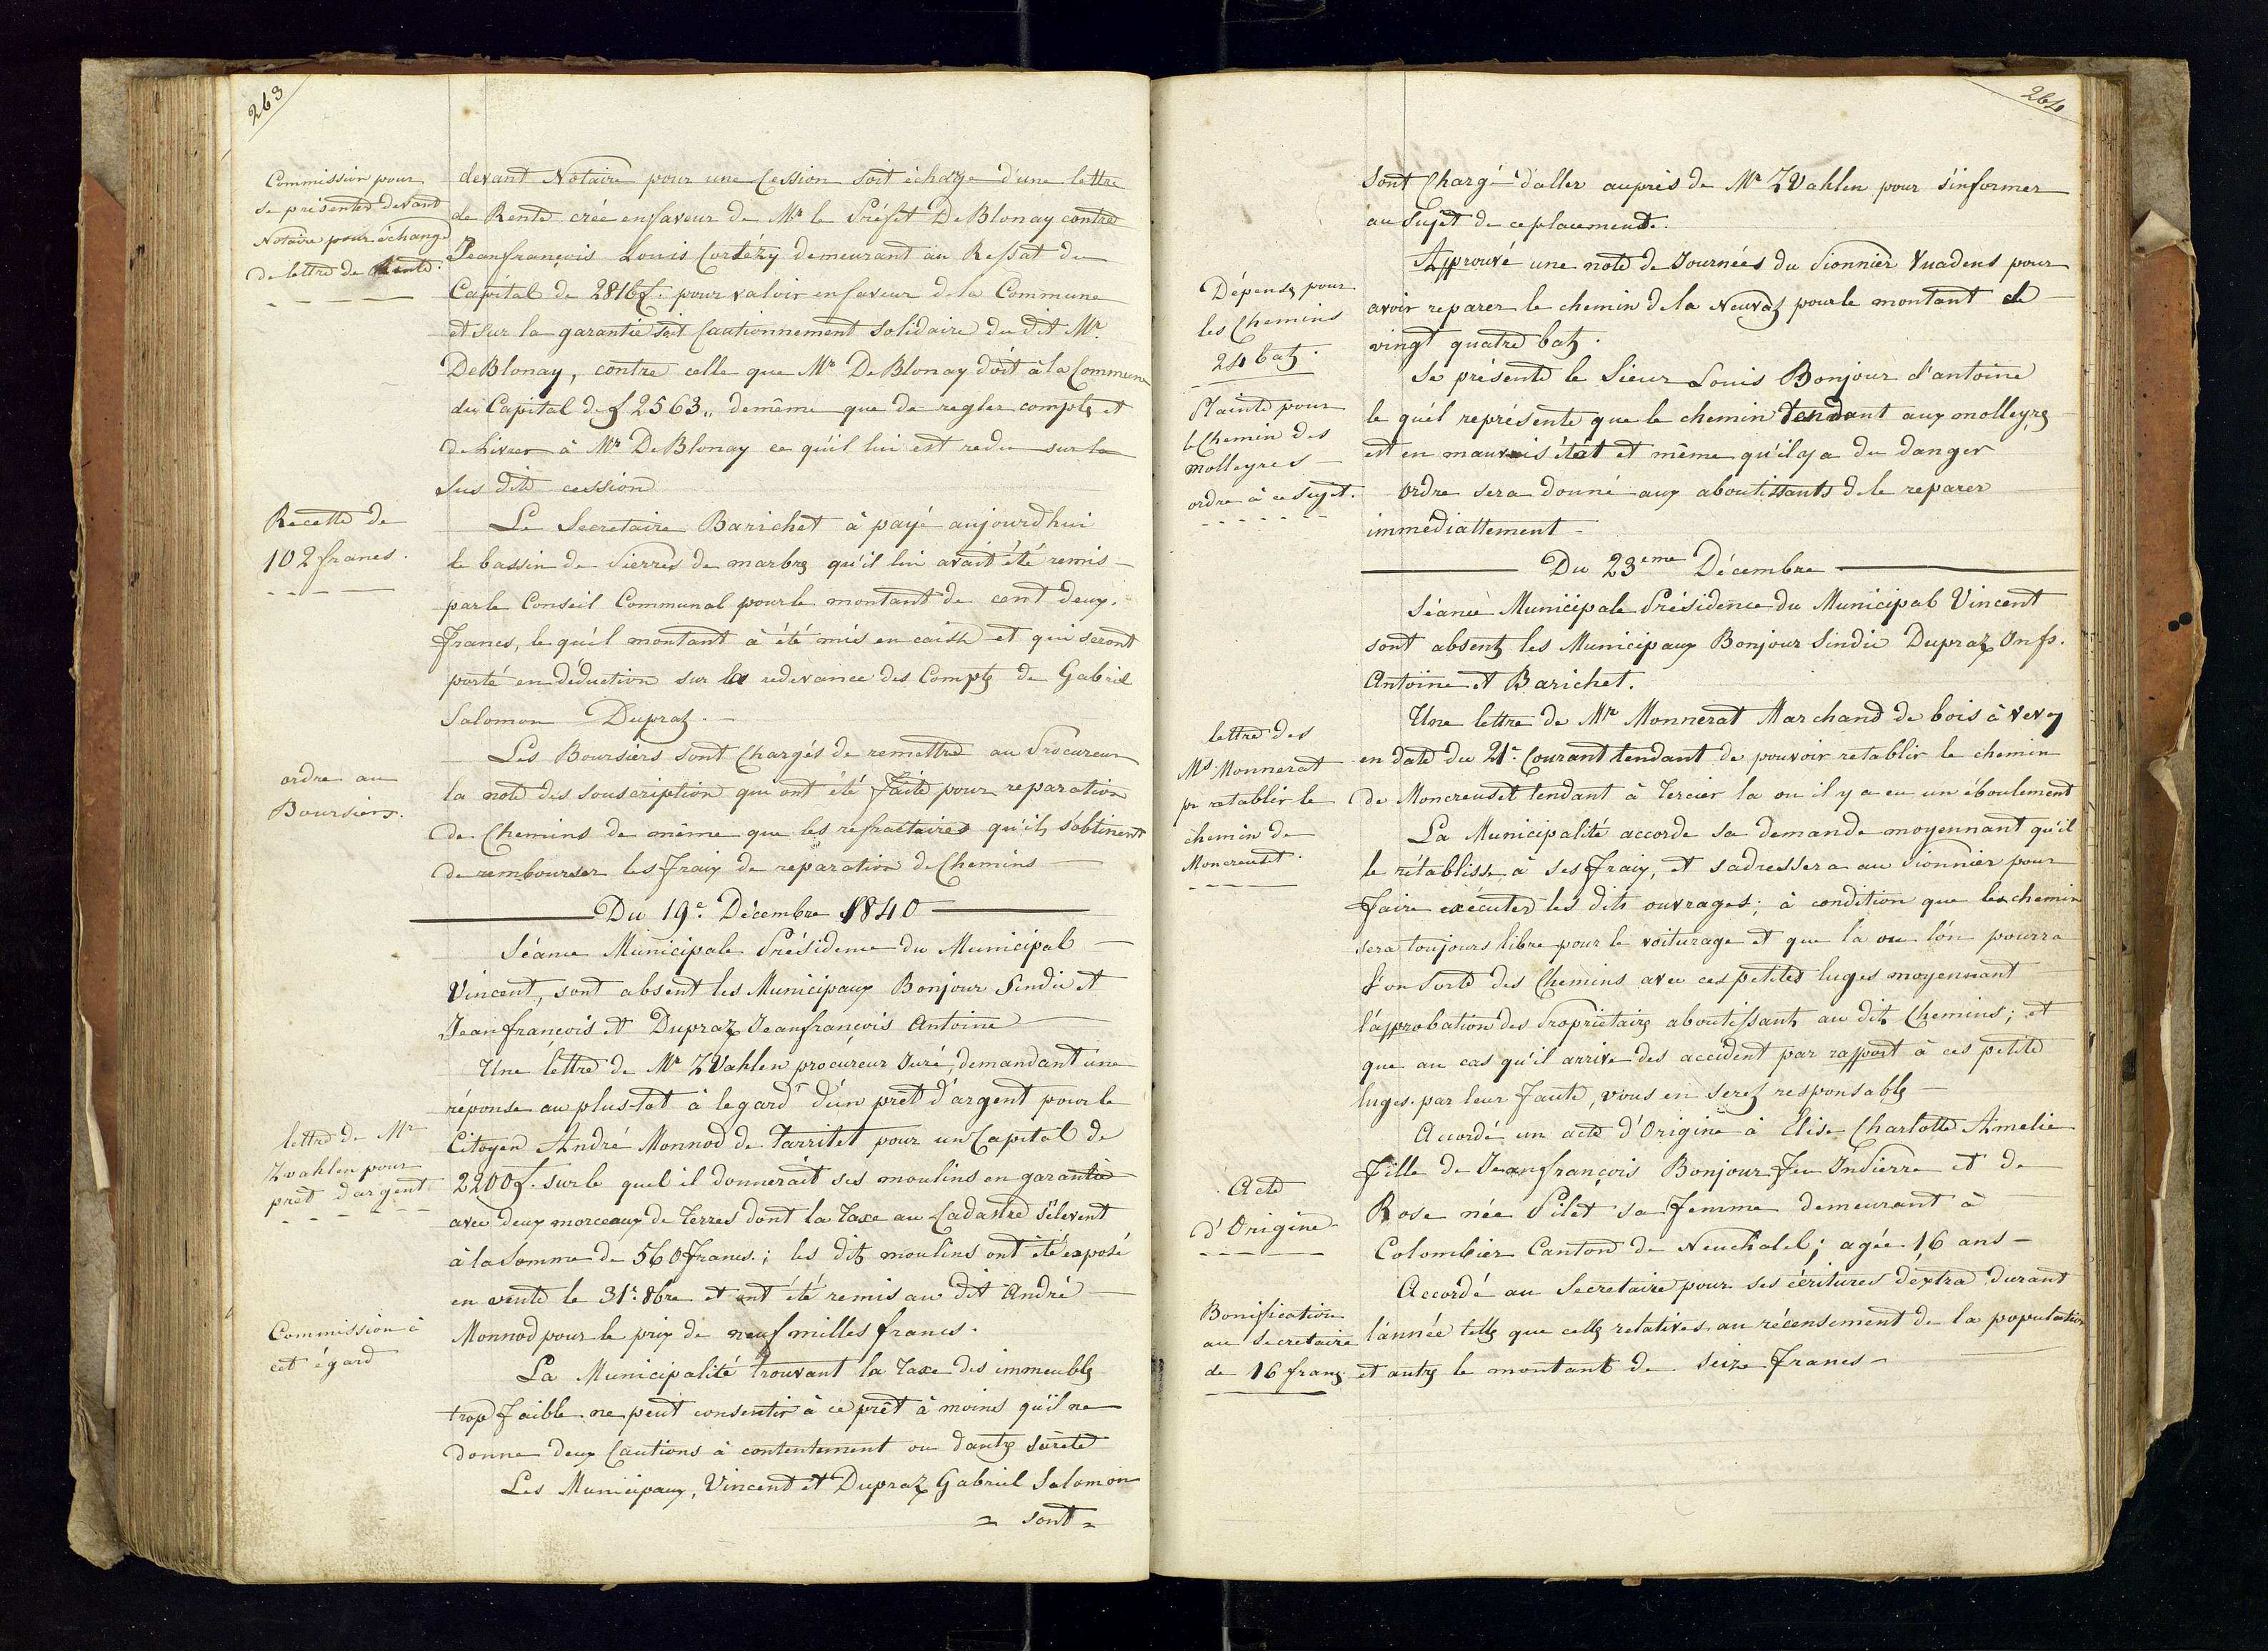 263
Commission pour
se présenter devant
Notaire pour échange
de lettre de Rente.
devant Notaire pour une Cession soit échange d'une lettre
de Rente crée enfaveur de Mr le Préfet De Blonay contre
Jeanfrançois Louis Cortézy demeurant au Ressat du
Capital de 2816f. pour valoir enfaveur dela Commune
et sur la garantie soit Cautionnement solidaire du dit Mr.
DeBlonay, contre celle que Mr De Blonay doit à la Commune
du Capital de f 2563,, demême que de regler compts et
de livrer à Mr De Blonay ce qu'il lui est redu sur la
sus dite cession
Recette de
102 francs.
Le Secretaire Barichet à payé aujourdhui
le bassin de Pierres de marbrs qu'il lui avait été remis
parle Conseil Communal pourle montant de cent deux
francs, le quél montant à été mis en caisse et qui seront
porté en déduction sur la redevance des Compts de Gabriel
Salomon Dupraz.
ordre au
Boursiers.
Les Boursiers sont Chargés de remettre au Procureur
la note des souscription qui ont été faite pour reparation
de Chemins de même que les refractaires qu'ils s'obtinent
de rembourser les fraix de reparation de Chemins
Du 19e. Décembre 1840
Séance Municipale Présidence du Municipal
Vincent, sont absent les Municipaux Bonjour Sindic et
Jeanfrançois et Dupraz Jeanfrançois Antoine
lettre de Mr
Zwahlen pour
prêt d'argent
Une lettre de Mr ZWahlen procureur Juré, demandant une
réponse au plus-tot à legard d'un prêt d'argent pour le
Citoyen André Monnod de Tarritet pour un Capital de
2200f. sur le quel il donnerait ses moulins en garantie
avec deux morceaux de Terres dont la Taxe au Cadastre s'élevent
à la somme de 560 francs.; les dits moulins ont été exposé
en vente le 31e. 8bre et ont été remis au dit André
Monnod pour le prix de neuf milles francs.
Commission à
cet égard
La Municipalité trouvant la Taxe des immeubls
trop faible ne peut consentir à ce prêt à moins qu'il ne
donne deux Cautions à contentement ou dautrs sûreté
Les Municipaux, Vincent et Dupraz Gabriel Salomon
= sont =
264
sont Chargé d'aller auprès de Mr ZWahlen pour s'informer
au sujet de ceplacement.
Dépenss pour
les Chemins
24 batz.
Approuvé une note de Journées du Pionnier Vuadens pour
avoir reparer le chemin dela Neuvaz pourle montant de
vingt quatre batz.
Plainte pour
le Chemin des
molleyres
ordre à ce sujet.
Se présente le Sieur Louis Bonjour d'antoine
le quél représente que le chemin tendant aux molleyrs
est en mauvais état et même qu'il y a du danger
Ordre sera donné aux aboutissants de le reparer
immédiattement
Du 23eme Décembre
Séance Municipale Présidence du Municipal Vincent
sont absents les Municipaux Bonjour Sindic Dupraz Jnfs.
Antoine et Barichet.
lettre des
Ms Monnerat
pr retablir le
chemin de
Moncreuset.
Une lettre de Mr Monnerat Marchand de bois à Vevey
en date du 21e. Courant tendant de pouvoir retablir le chemin
de Moncreuset tendant à Tercier la ou il y a eu un éboulement
La Municipalité accorde sa demande moyennant qu'il
le rétablisse à ses fraix, et sadressera au Pionnier pour
faire exécuter les dits ouvrages; à condition que le chemin
sera toujours libre pour le voiturage et que là ou l'ón pourra
l'on Sorte des Chemins avec ces petites luges moyennant
l'approbation des Propriétairs aboutissants au dits Chemins; et
que au cas qu'il arrive des accident par rapport à ces petite
luges. par leur faute, vous en serez responsabls
Acte
d'Origine.
Accordé un acte d'Origine à Elise Charlotte Amelie
fille de Jeanfrançois Bonjour feu JnPierre et de
Rose née Pilet sa femme demeurant à
Colombier Canton de Neuchatel; agée 16 ans
Bonification
au Secretaire
de 16 francs
Accordé au Secretaire pour ses écritures d'éxtra durant
lánnée tells que cells relatives au récensement de la population
et autrs le montant de seize francs